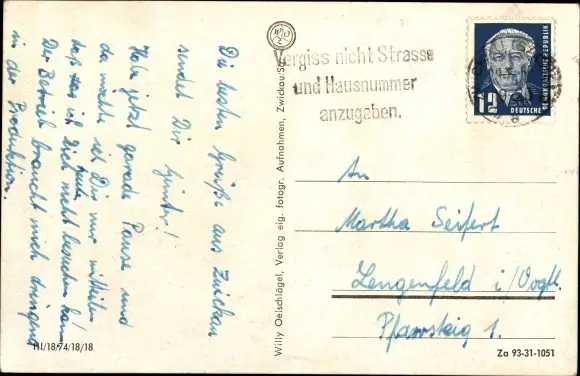 Die besten Grüße aus Zwickau
sendet Dir Günter!
Habe jetzt gerade Pause und
da wollte ich Dir nur mitteilen
daß ich Dich heute nicht besuchen kann.
Der Betrieb braucht mich dringend
in der Produktion.
III/18/74/18/18
WOZ
Willy Oelschlägel, Verlag eig. fotogr. Aufnahmen, Zwickau/Sa.
Vergiss nicht Strasse
und Hausnummer
anzugeben.
12
DEUTSCHE
DEMOKRATISCHE REPUBLIK
An
Martha Seifert
Lengenfeld i/Vogtl.
Pfarrsteig 1.
Za 93-31-1051